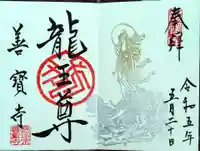 奉拝
令和五年
五月二十日
龍王尊
善寳寺